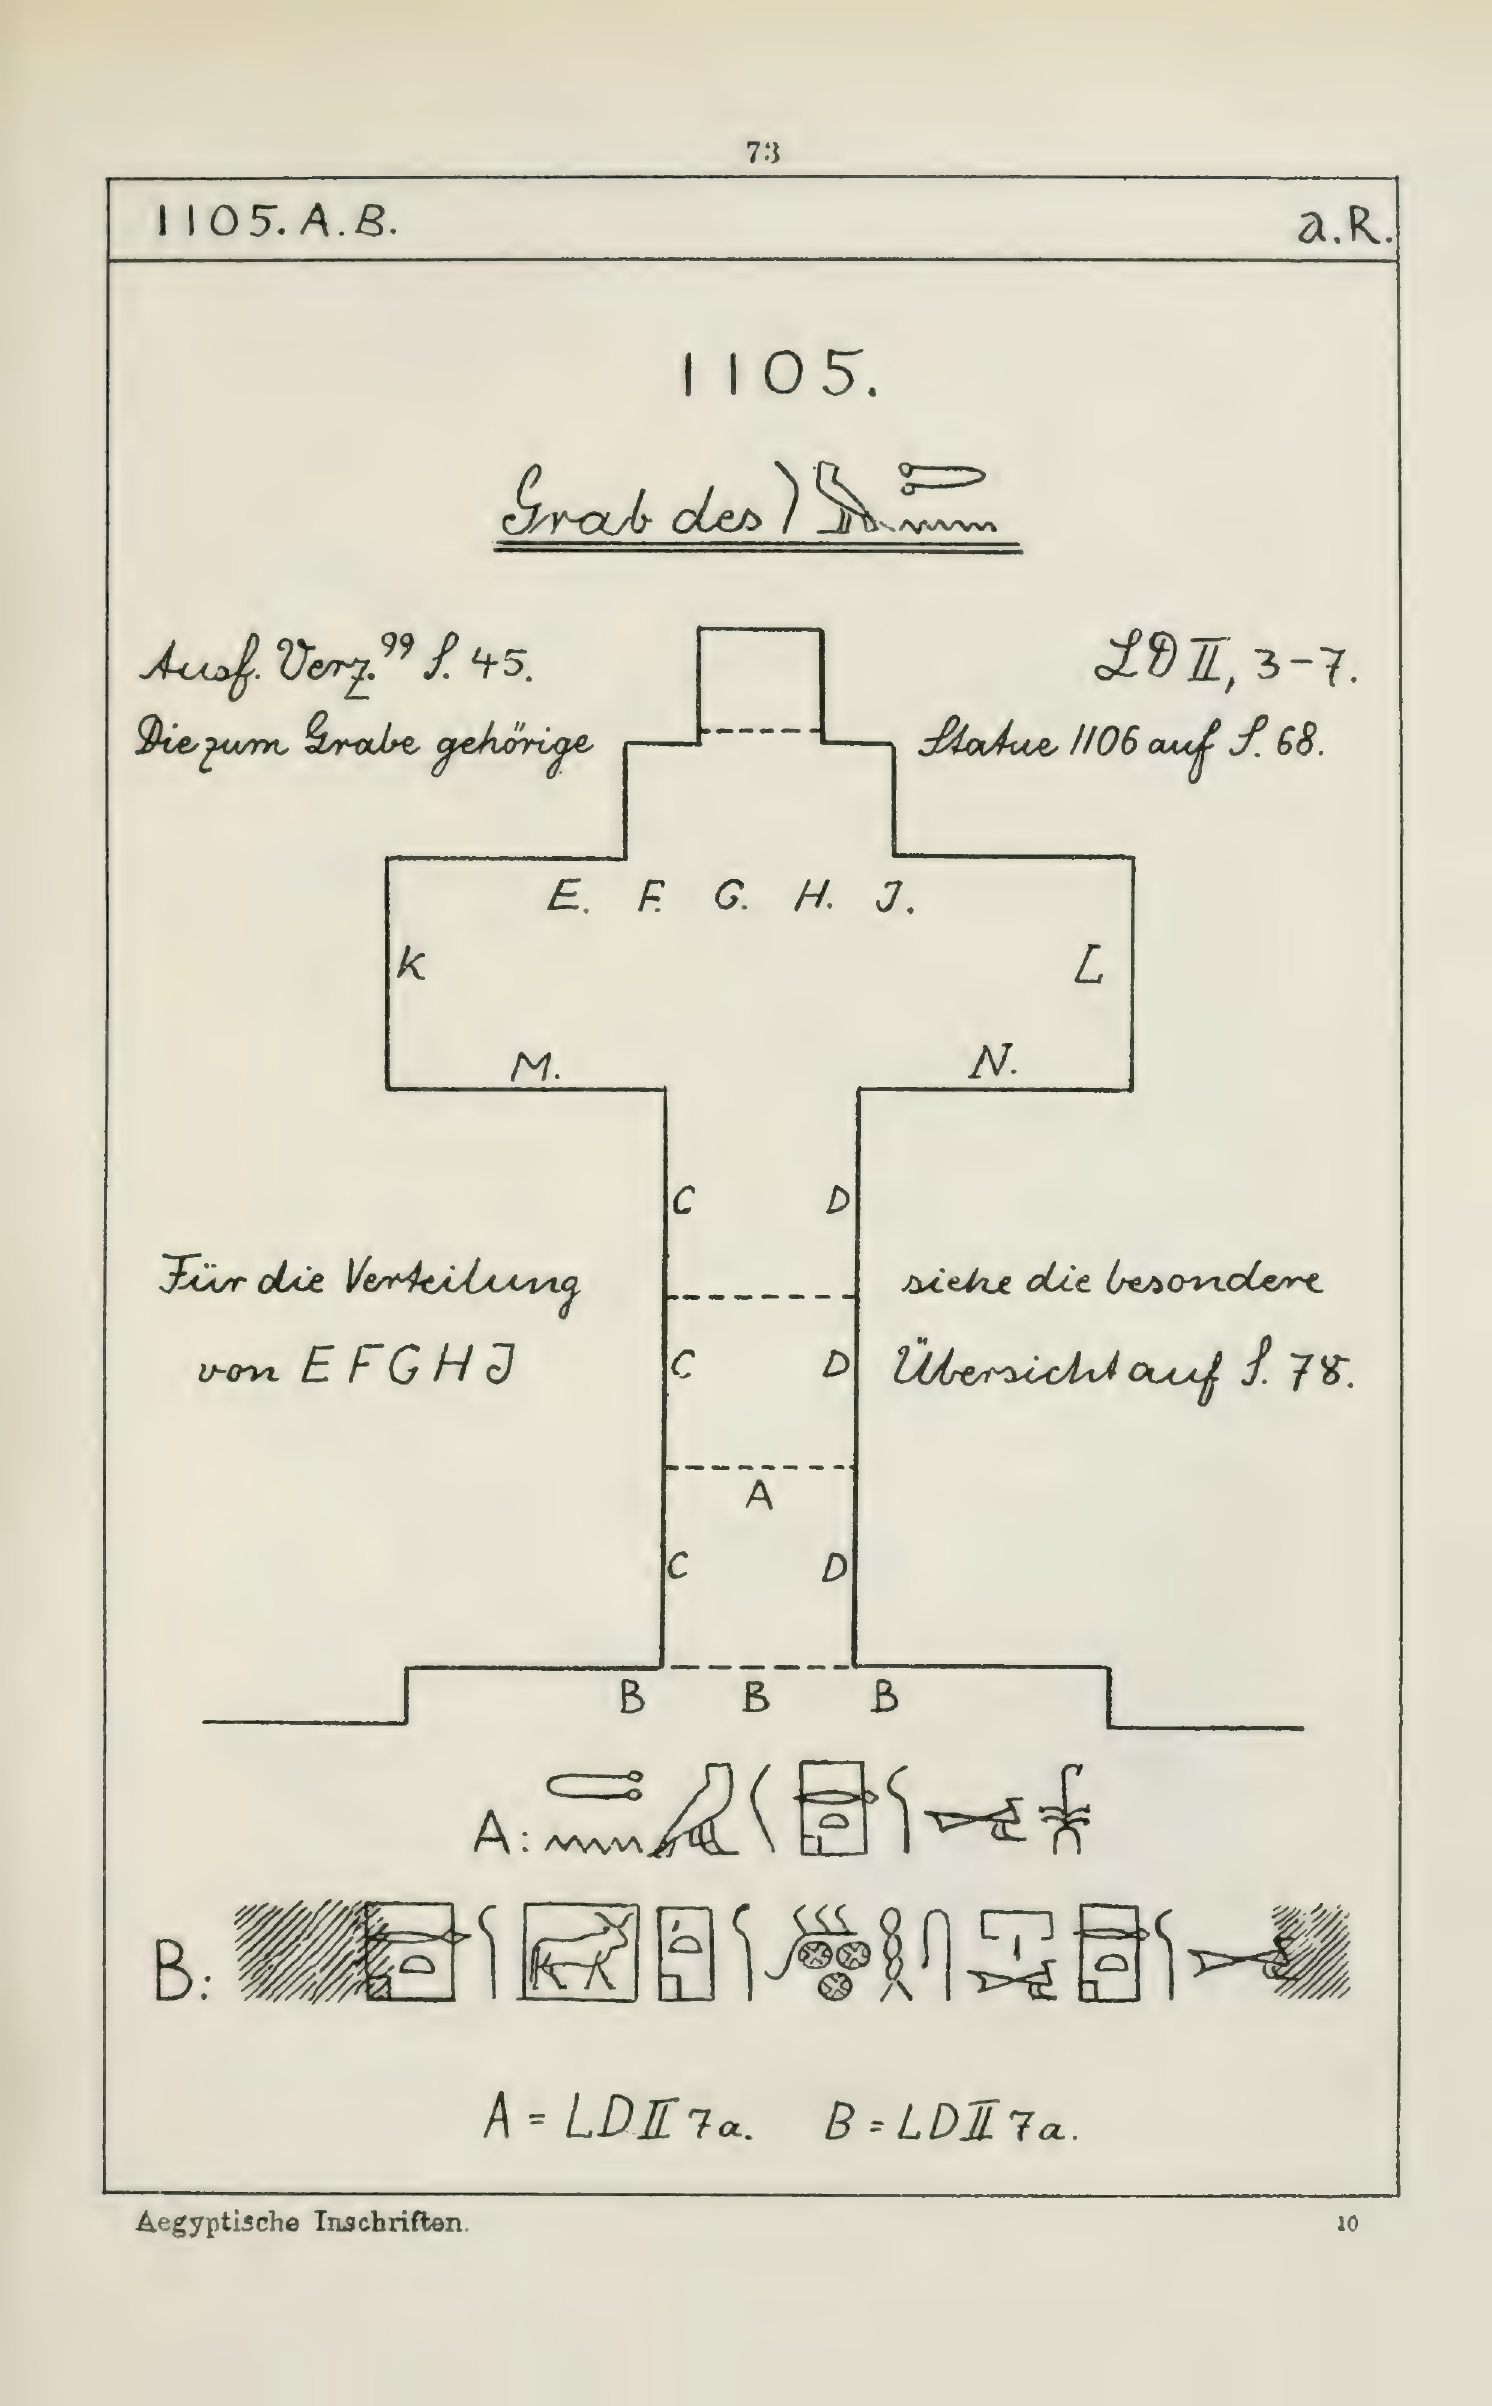 73
1105. A. B.
a. R.
1105.
Grab des
Ausf. Verz.⁹⁹ S. 45.
LD II, 3-7.
Die zum Grabe gehörige
Statue 1106 auf S. 68.
E. F. G. H. J.
K L
M. N.
C D
Für die Verteilung
siehe die besondere
von E F G H J
C D
Übersicht auf S. 78.
A
C D
B B B
A:
B:
A = LD II 7a. B = LD II 7a.
Aegyptische Inschriften.
10